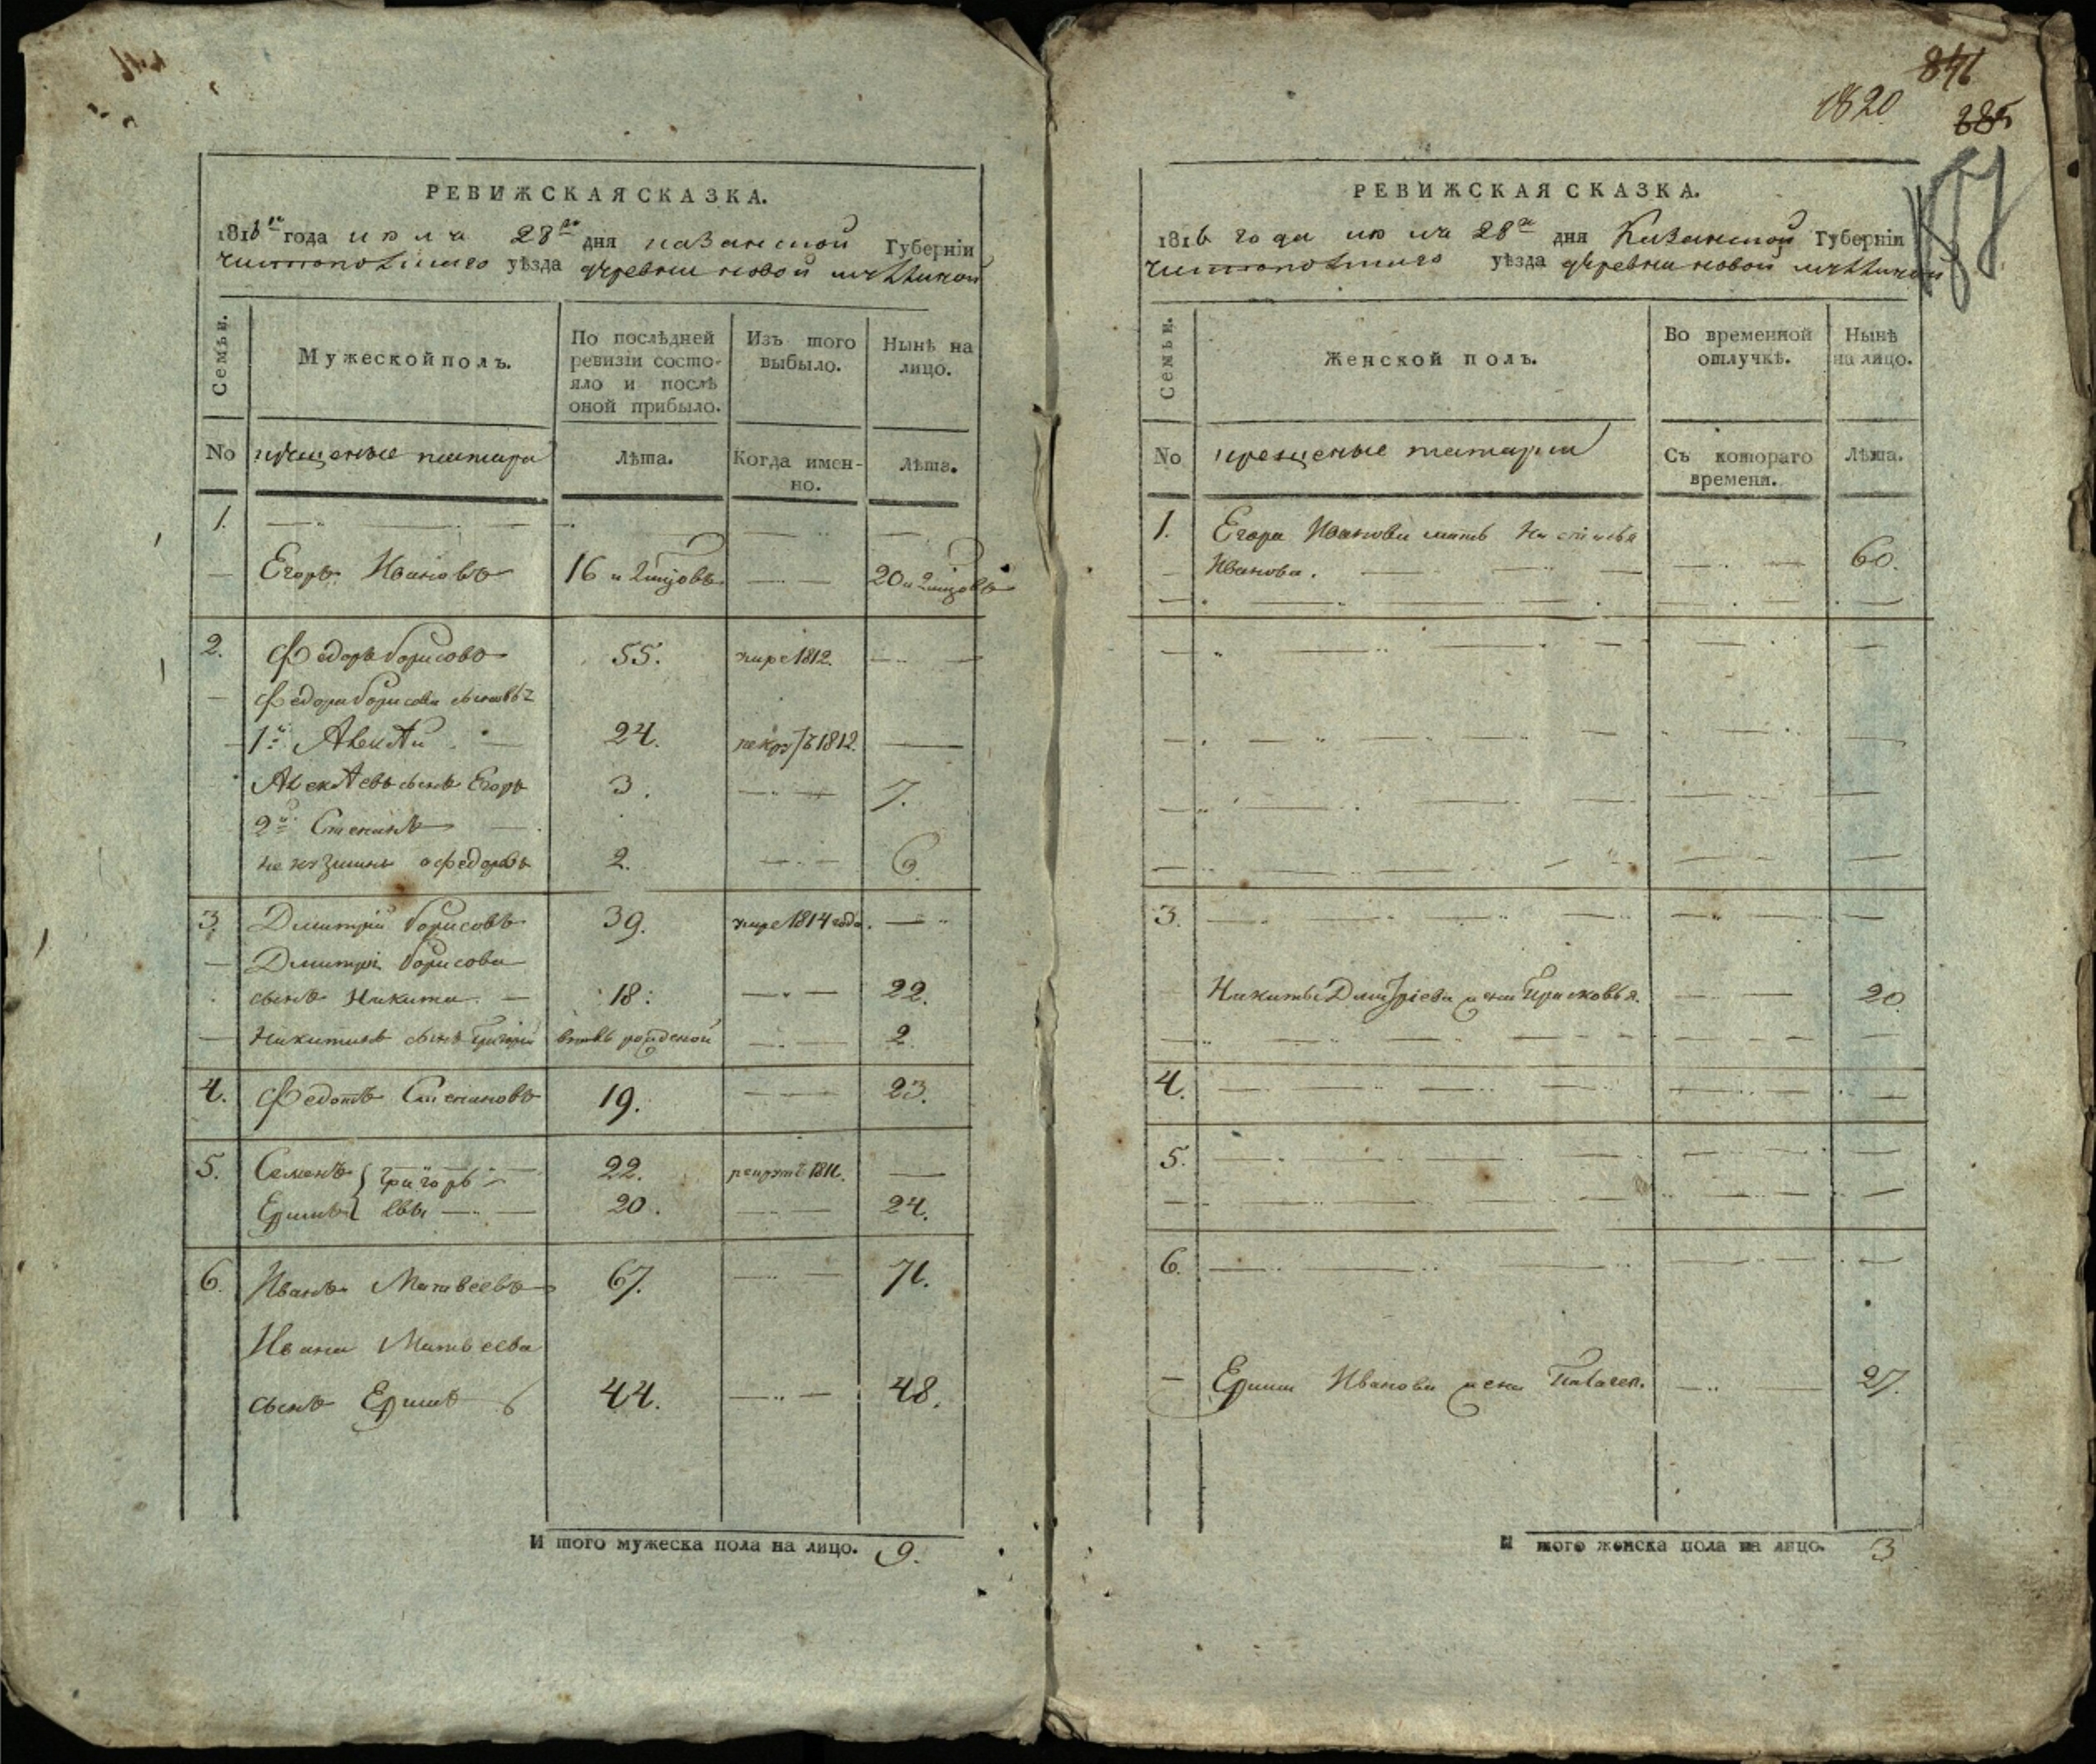 РЕВИЖСКАЯ СКАЗКА.
1816 года июля 28 дня казанской Губерніи
чистопольскаго уѣзда деревни новой
Семьи.
Мужеской полъ.
По послѣдней ревизіи состо-
яло и послѣ
оной прибыло.
Изъ того
выбыло.
Нынѣ на
лицо.
No
крещеные татара
Лѣта.
Когда имен-
но.
Лѣта.
1.
Егоръ Ивановъ 16 20
2. Федоръ борисовъ 55. умре 1812.
Федора борисова сыновья
1й Алексѣй 24. рекру 1812.
Алексѣевъ сынъ Егоръ 3. 7.
2й Степанъ
2. 6.
3. Дмитрій борисовъ 39. умре 1814 года.
Дмитрія борисова
сынъ Никита 18. 22.
Никитинъ сынъ Григорій вновь рожденой 2.
4. Федотъ Степановъ 19. 23.
5. Семенъ Григорь 22. рекрутъ 1811.
Ефимъ евы 20. 24.
6. Иванъ Матвеевъ 67. 71.
Ивана Матвеева
сынъ Ефимъ 44. 48.
И того мужеска пола на лицо. 9.
846
1820
385
РЕВИЖСКАЯ СКАЗКА.
1816 года июля 28 дня Казанской Губерніи
чистопольскаго уѣзда деревни новой
Семьи.
Женской полъ.
Во временной
отлучкѣ.
Нынѣ
на лицо.
No
крещеные татарки
Съ котораго
времени.
Лѣта.
1. Егора Иванова мать Настасья
Иванова. 60.
3.
Никиты Дмитріева жена Прасковья. 20.
4.
5.
6.
Ефима Иванова жена Палагея. 27.
И того женска пола на лицо. 3